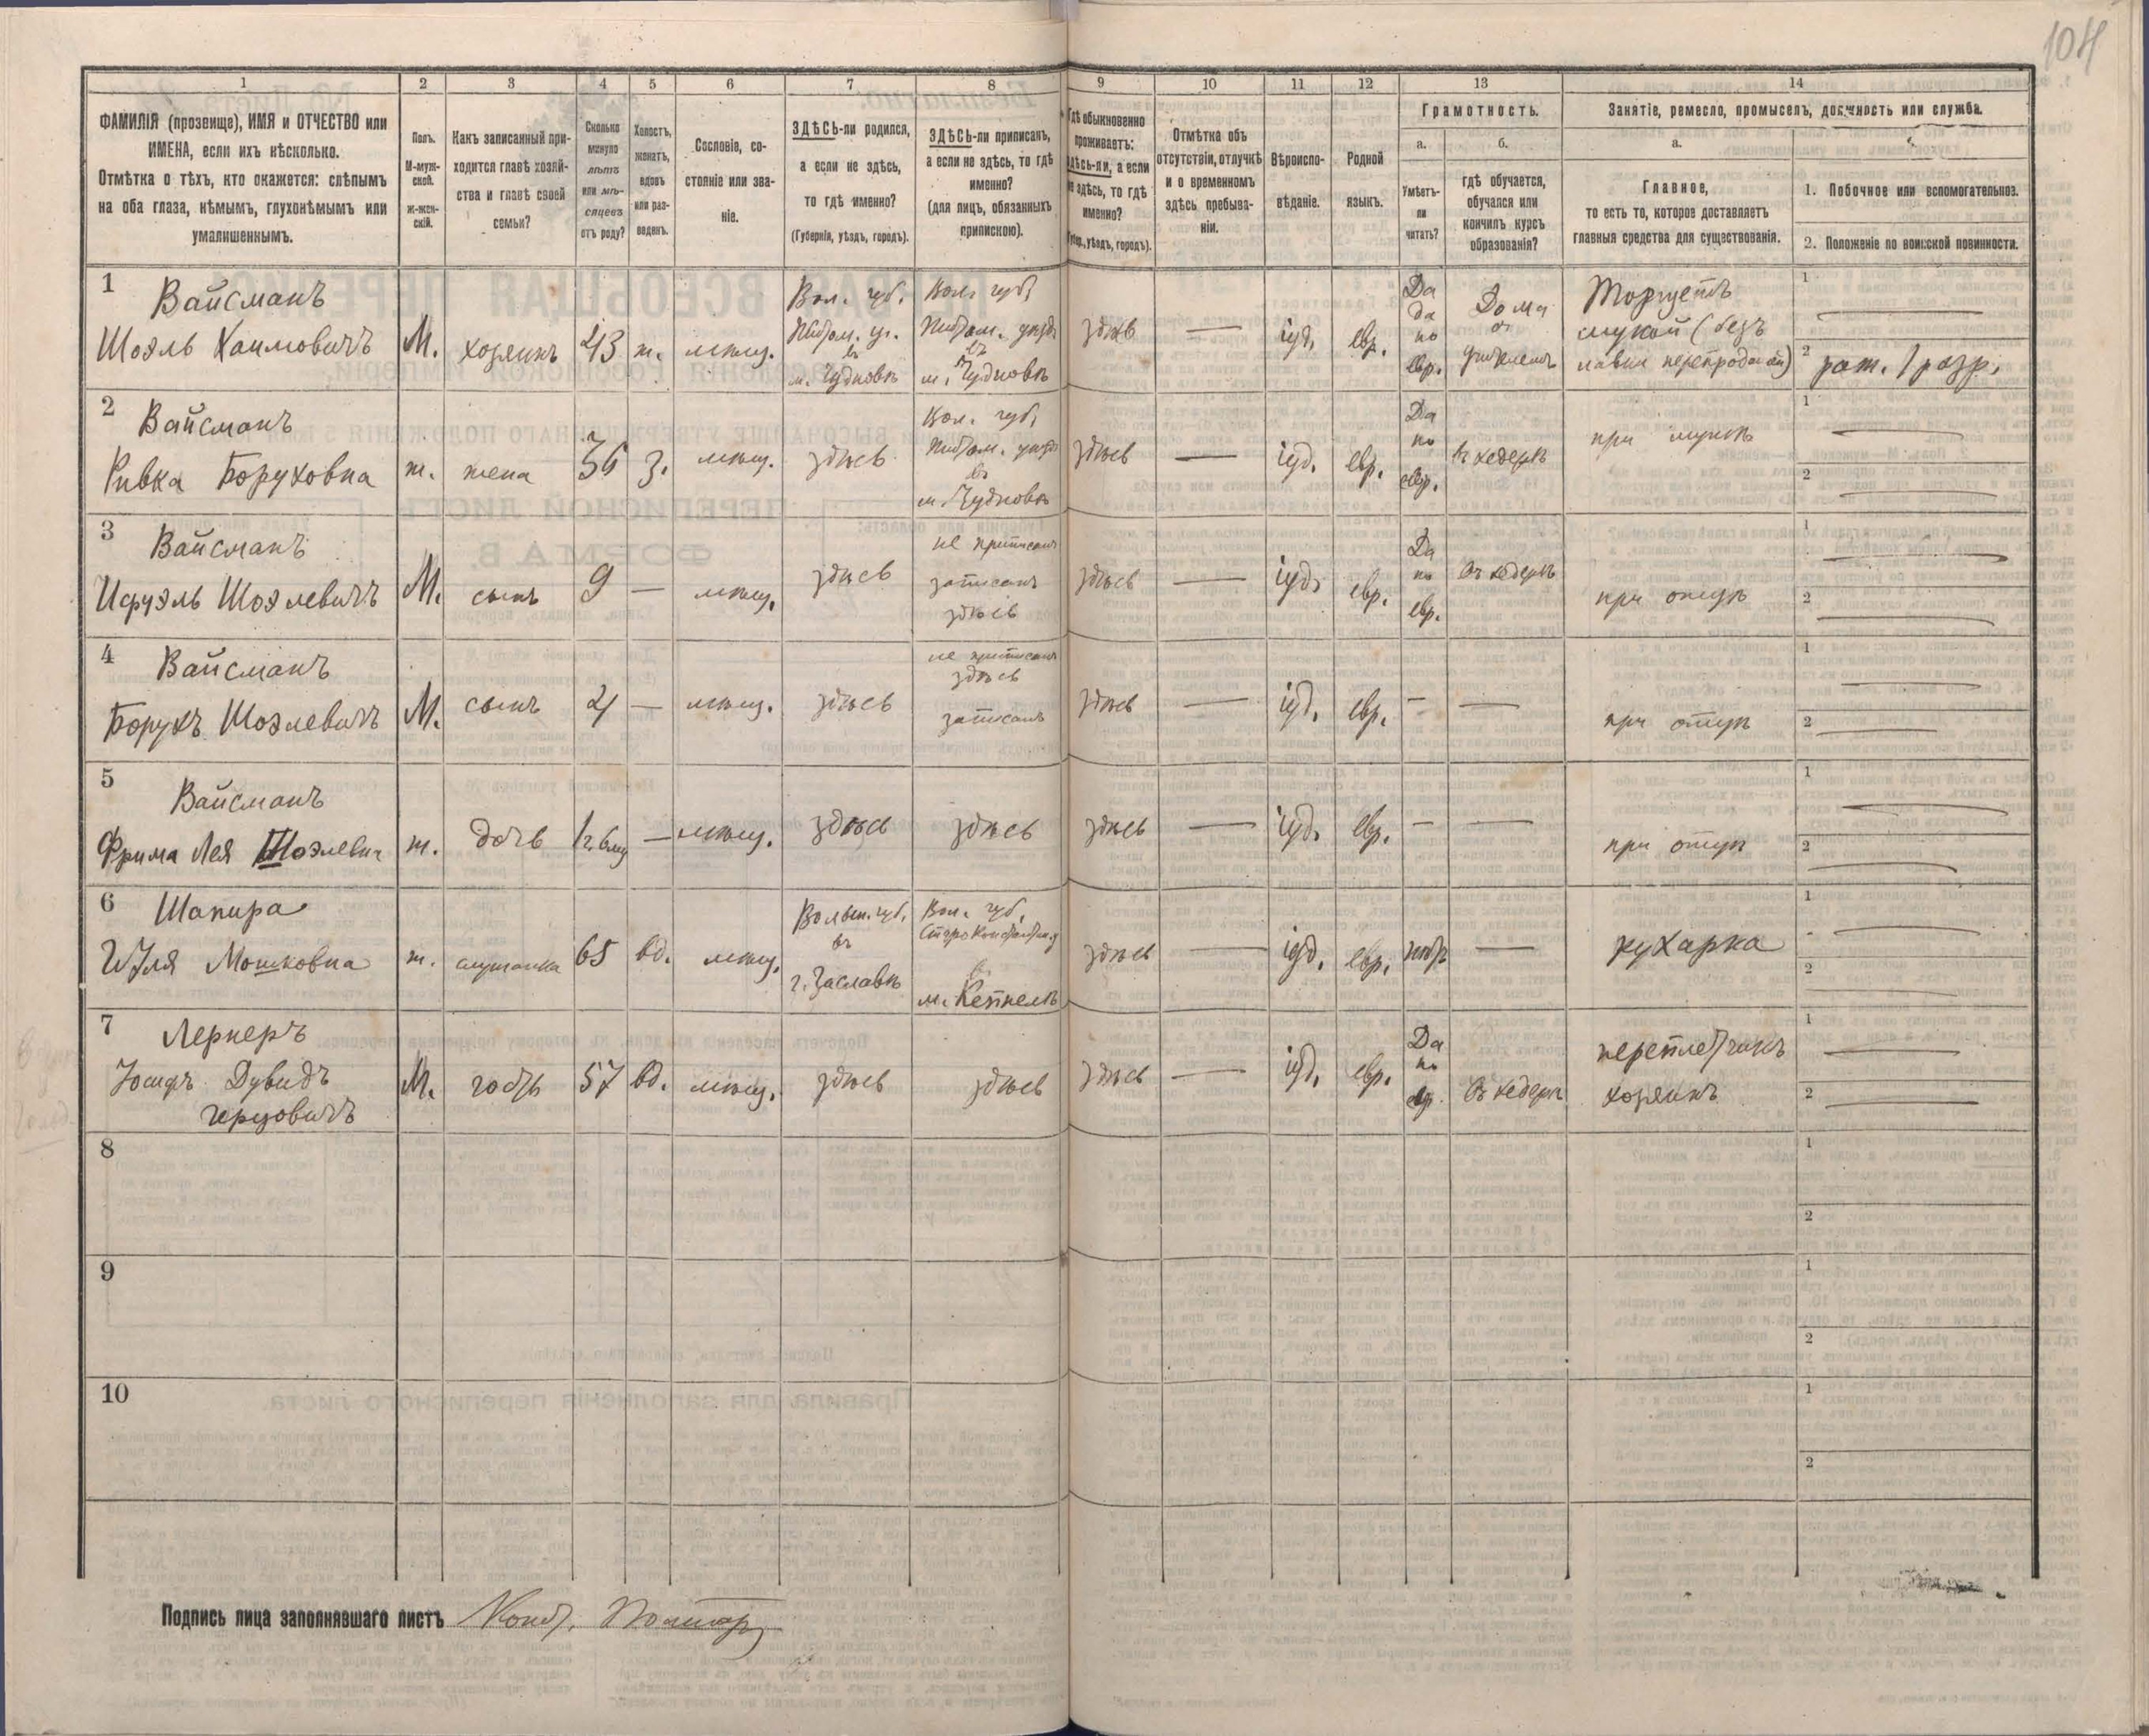 104
1 2 3 4 5 6 7 8 9 10 11 12 13 14
ФАМИЛІЯ (прозвище), ИМЯ и ОТЧЕСТВО или
ИМЕНА, если ихъ нѣсколько.
Отмѣтка о тѣхъ, кто окажется: слѣпымъ
на оба глаза, нѣмымъ, глухонѣмымъ или
умалишеннымъ.
Полъ.
М-муж-
ской.
Ж-жен-
скій.
Какъ записанный при-
ходится главѣ хозяй-
ства и главѣ своей
семьи?
Сколько
минуло
лѣтъ
или мѣ-
сяцевъ
отъ роду?
Холостъ,
женатъ,
вдовъ
или раз-
веденъ.
Сословіе, со-
стояніе или зва-
ніе.
ЗДѢСЬ-ли родился,
а если не здѣсь,
то гдѣ именно?
(Губернія, уѣздъ, городъ).
ЗДѢСЬ-ли приписанъ,
а если не здѣсь, то гдѣ
именно?
(для лицъ, обязанныхъ
припискою).
Гдѣ обыкновенно
проживаетъ:
здѣсь-ли, а если
не здѣсь, то гдѣ
именно?
(Губер., уѣздъ, городъ).
Отмѣтка объ
отсутствіи, отлучкѣ
и о временномъ
здѣсь пребыва-
ніи.
Вѣроиспо-
вѣданіе.
Родной
языкъ.
Грамотность.
а.
Умѣетъ-
ли
читать?
б.
гдѣ обучается,
обучался или
кончилъ курсъ
образованія?
Занятіе, ремесло, промыселъ, должность или служба.
а.
Главное,
то есть то, которое доставляетъ
главныя средства для существованія.
1. Побочное или вспомогательное.
2. Положеніе по воинской повинности.
1 Вайсманъ
Шоэль Хаимовичъ
М.
хозяинъ
43
ж.
мѣщ.
Вол. губ.
Житом. у.
въ
м. Чудновѣ
Вол. губ.
Житом. уѣзд.
въ
м. Чудновѣ
здѣсь
—
іуд.
евр.
Да
да
по
евр.
Дома
учителемъ
Торгуетъ
мукой (безъ
лавки перепродажи)
1 —
2 рат. 1 разр.
2 Вайсманъ
Ривка Боруховна
ж.
жена
36
з.
мѣщ.
здѣсь
Вол. губ.
Житом. уѣзд.
въ
м. Чудновѣ
здѣсь
—
іуд.
евр.
Да
по
евр.
въ хедерѣ
при мужѣ
1 —
2 —
3 Вайсманъ
Исруэль Шоэлевичъ
М.
сынъ
9
—
мѣщ.
здѣсь
не приписанъ
записанъ
здѣсь
здѣсь
—
іуд.
евр.
Да
по
евр.
въ хедерѣ
при отцѣ
1 —
2 —
4 Вайсманъ
Борухъ Шоэлевичъ
М.
сынъ
4
—
мѣщ.
здѣсь
не приписанъ
здѣсь
записанъ
здѣсь
—
іуд.
евр.
—
—
при отцѣ
1 —
2 —
5 Вайсманъ
Фрима Лея Шоэлевна
ж.
дочь
1 г. 6 мѣ
—
мѣщ.
здѣсь
здѣсь
здѣсь
—
іуд.
евр.
—
—
при отцѣ
1 —
2 —
6 Шапира
Мошковна
ж.
служанка
65
вд.
мѣщ.
Волын. губ.
въ
г. Заславѣ
Вол. губ.
Староконстант. у
въ
м.
здѣсь
—
іуд.
евр.
нѣтъ
—
кухарка
1 —
2 —
7 Лернеръ
Іосифъ Дувидъ
Герцовичъ
М.
гость
57
вд.
мѣщ.
здѣсь
здѣсь
здѣсь
—
іуд.
евр.
Да
по
евр.
въ хедерѣ
переплетчикъ
хозяинъ
1 —
2 —
8
1
2
9
1
2
10
1
2
Подпись лица заполнявшаго листъ